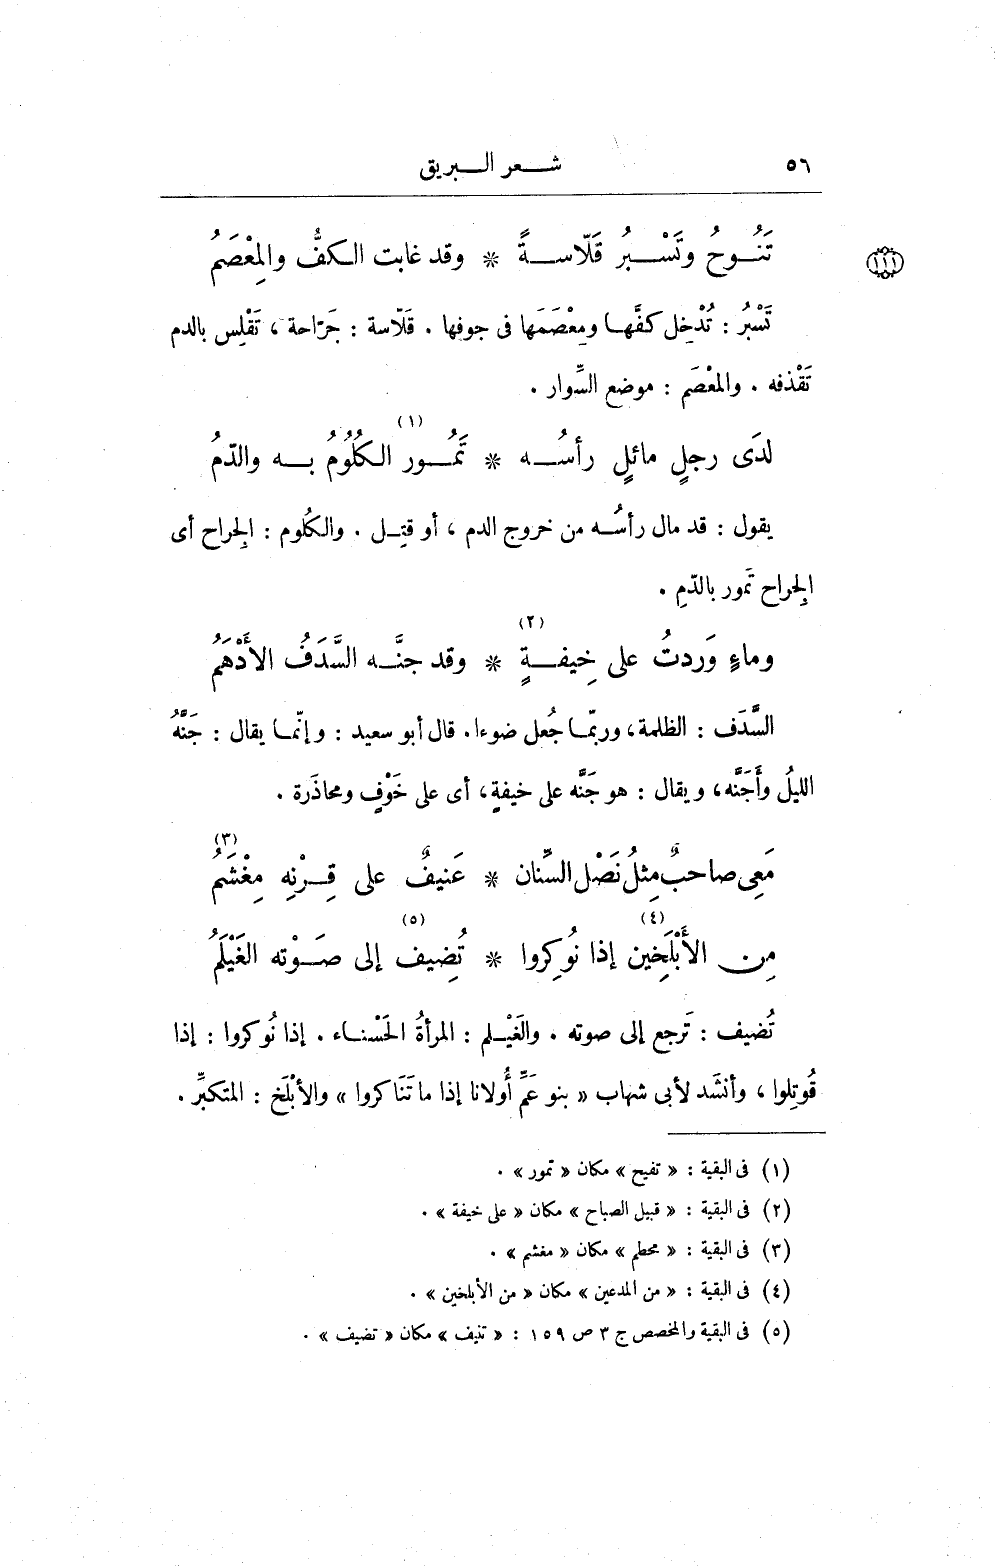 ٥٦ شعر البريق
تَنُوحُ وتَسْبُرُ قَلّاسةً * وقد غابت الكفُّ والمِعْصَمُ
١١١
تَسْبُرُ : تُدْخِل كفَّها ومِعْصَمَها فى جوفها . قَلّاسة : جَرّاحة ، تَقْلِس بالدم
تَقْذفه . والمعْصَم : موضع السِّوار .
لدَى رجلٍ مائلٍ رأسُه * تَمُور (١) الكُلُومُ به والدّمُ
يقول : قد مال رأسُه من خروج الدم ، أو قتِل . والكلُوم : الجِراح أى
الجِراح تَمور بالدّمِ .
وماءٍ وَردتُ على خِيفةٍ (٢) * وقد جنَّه السَّدَفُ الأَدْهَمُ
السَّدَف : الظلمة، وربّما جُعل ضوءا. قال أبو سعيد : وإنّما يقال : جَنَّهُ
الليلُ وأَجَنَّه، ويقال : هو جَنَّه على خيفةٍ، أى على خَوْفٍ ومحاذَرة .
مَعِى صاحبٌ مِثلُ نَصْل السِّنان * عَنيفٌ على قِرْنِه مِغْشَمُ (٣)
مِن الأَبْلَخِين (٤) إذا نُوكِروا * تُضِيف (٥) إلى صَوْته الغَيْلَمُ
تُضيف : تَرجع إلى صوته . والغَيْلم : المرأةُ الحَسْناء . إذا نُوكروا : إذا
قُوتِلوا ، وأنشَد لأبى شهاب « بنو عَمِّ أُولانا إذا ما تَنَاكروا » والأبْلَخ : المتكبِّر .
(١) فى البقية : « تفيح » مكان « تمور » .
(٢) فى البقية : « قبيل الصباح » مكان « على خيفة » .
(٣) فى البقية : « محطم » مكان « مغشم » .
(٤) فى البقية : « من المدعين » مكان « من الأبلخين » .
(٥) فى البقية والمخصص ج ٣ ص ١٥٩ : « تنيف » مكان « تضيف » .